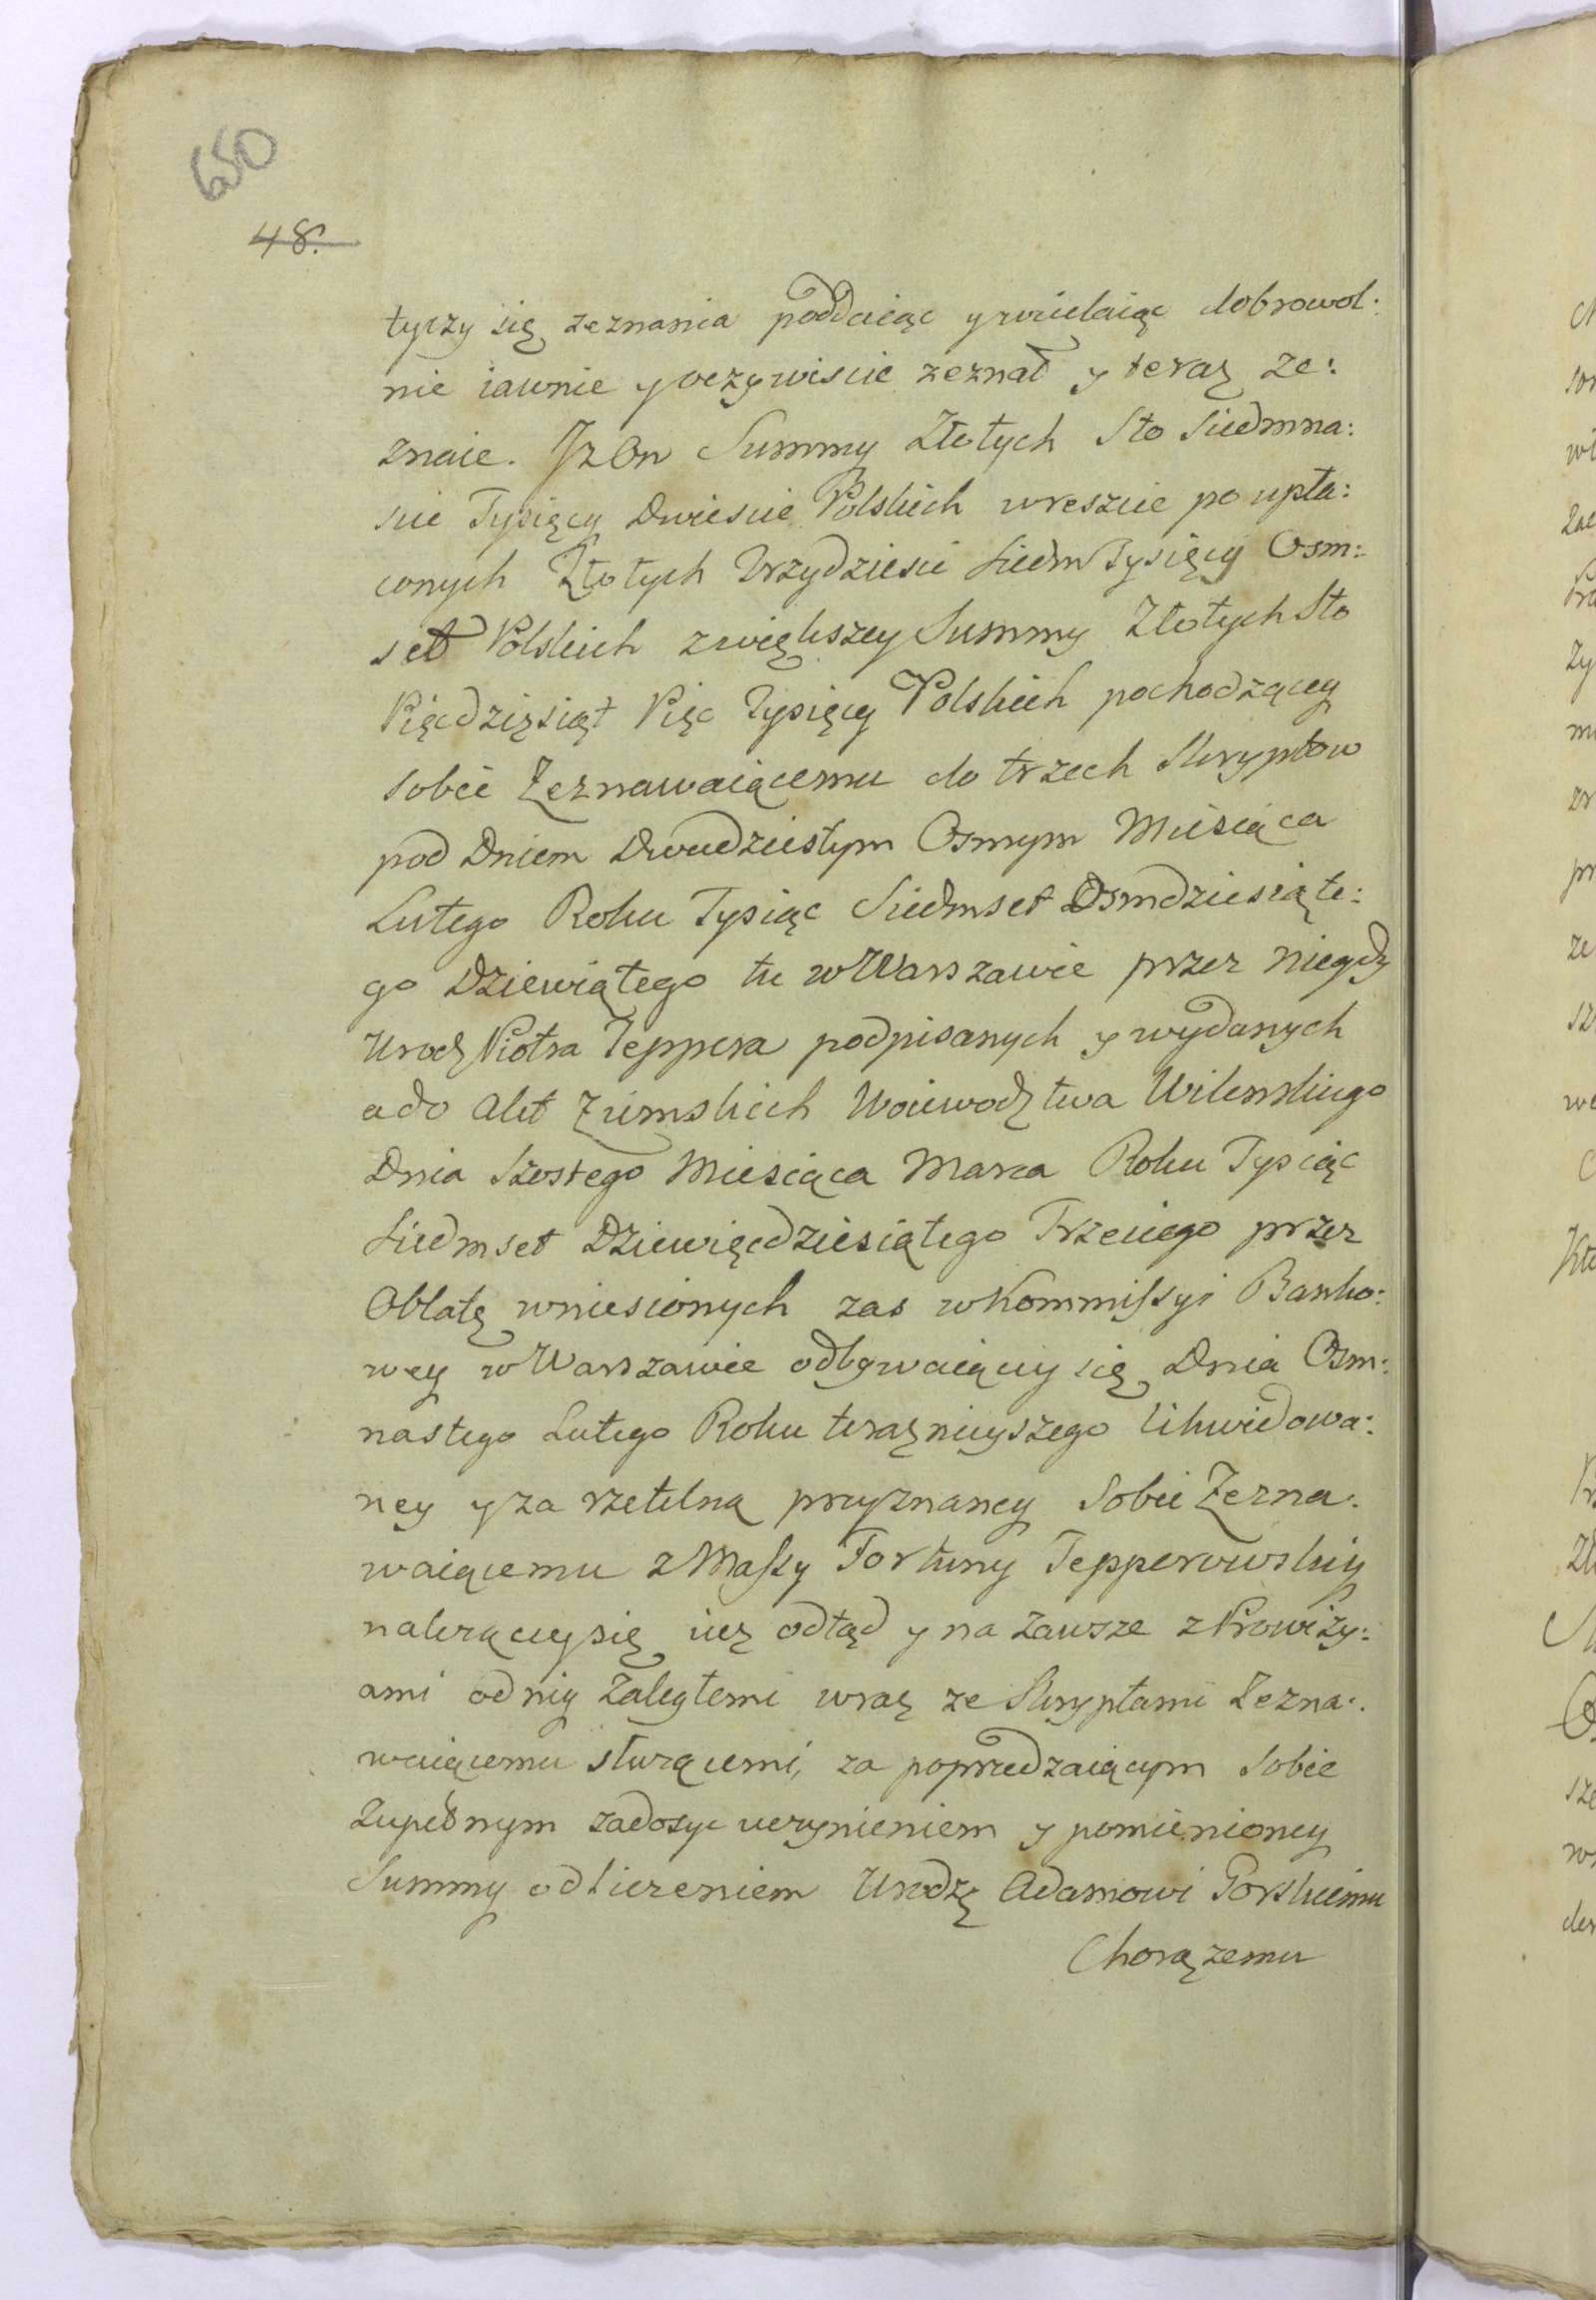 650
48.
tyczy się zeznania poddaiąc y wcielaiąc dobrowol:
nie iawnie y oczywiscie zeznał y teraz ze:
znaie. Iz On Summy Złotych Sto Siedmna:
scie Tysięcy Dwiescie Polskich wreszcie po upła:
conych Złotych Trzydziesci Siedm Tysięcy Osm:
set Polskich z większey Summy Złotych Sto
Pięcdziesiąt Pięc Tysięcy Polskich pochodzącey
sobie Zeznawaiącemu do trzech Skryptow
pod Dniem Dwudziestym Osmym Miesiąca
Lutego Roku Tysiąc Siedmset Osmdziesiąte:
go Dziewiątego tu w Warszawie przez niegdy
Urodz Piotra Teppera podpisanych y wydanych
a do Akt Ziemskich Woiewodztwa Wilenskiego
Dnia Szostego Miesiąca Marca Roku Tysiąc
Siedmset Dziewięcdziesiątego Trzeciego przez
Oblatę wniesionych zas w Kommissyi Banko:
wey w Warszawie odbywaiącey się Dnia Osm:
nastego Lutego Roku teraznieyszego likwidowa:
ney y za rzetelną przyznaney Sobie Zezna:
waiącemu z Massy Fortuny Tepperowskiey
nalezącey się iuz odtąd y na zawsze z Prowizy:
ami od niey zaległemi wraz ze Skryptami Zezna:
waiącemu słuzącemi, za poprzedzaiącym Sobie
zupełnym zadosyc uczynieniem y pomienioney
Summy odliczeniem Urodz Adamowi Gorskiemu
Chorązemu